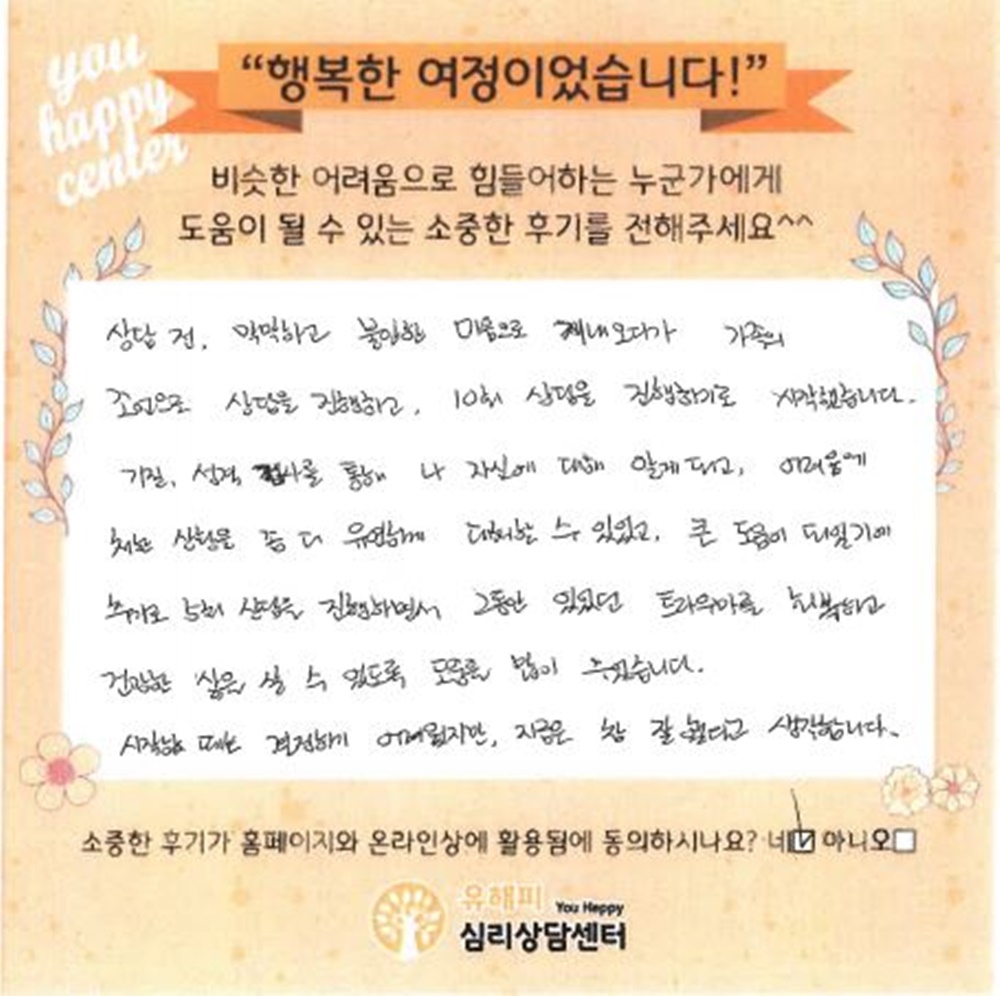 you
happy
center
“행복한 여정이었습니다!”
비슷한 어려움으로 힘들어하는 누군가에게
도움이 될 수 있는 소중한 후기를 전해주세요^^
상담 전, 막막하고 불안한 마음으로 지내오다가 가족의
조언으로 상담을 진행하고, 10회 상담을 진행하기로 시작했습니다.
기질, 성격 검사를 통해 나 자신에 대해 알게 되고, 어려움에
처한 상황을 좀 더 유연하게 대처할 수 있었고, 큰 도움이 되었기에
추가로 5회 상담을 진행하면서 그동안 있었던 트라우마를 회복하고
건강한 삶을 살 수 있도록 도움을 많이 주었습니다.
시작할 때는 결정하기 어려웠지만, 지금은 참 잘했다고 생각합니다.
소중한 후기가 홈페이지와 온라인상에 활용됨에 동의하시나요? 네☑ 아니오□
유해피 You Happy
심리상담센터